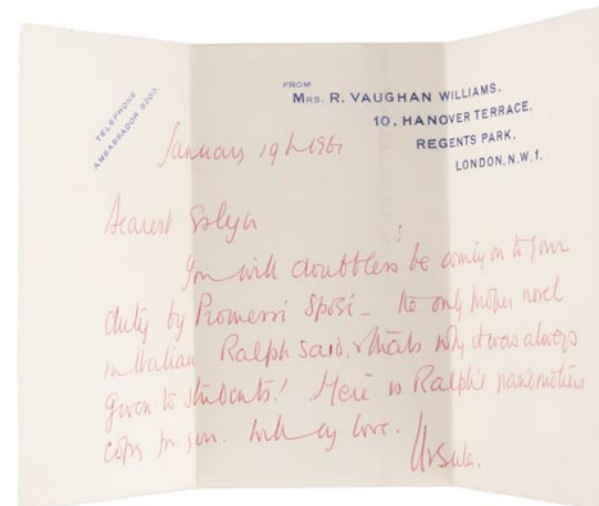 TELEPHONE
AMBASSADOR 8200.
FROM
MRS. R. VAUGHAN WILLIAMS.
10, HANOVER TERRACE,
REGENTS PARK,
LONDON, N.W.1.
January 19th 1961
Dearest
You will doubtless be coming on to your
duty by Promessi Sposi – the only proper novel
in Italian Ralph said, & thats why it was always
given to students! Here is Ralph's grandmothers
copy for you. With my love.
Ursula.